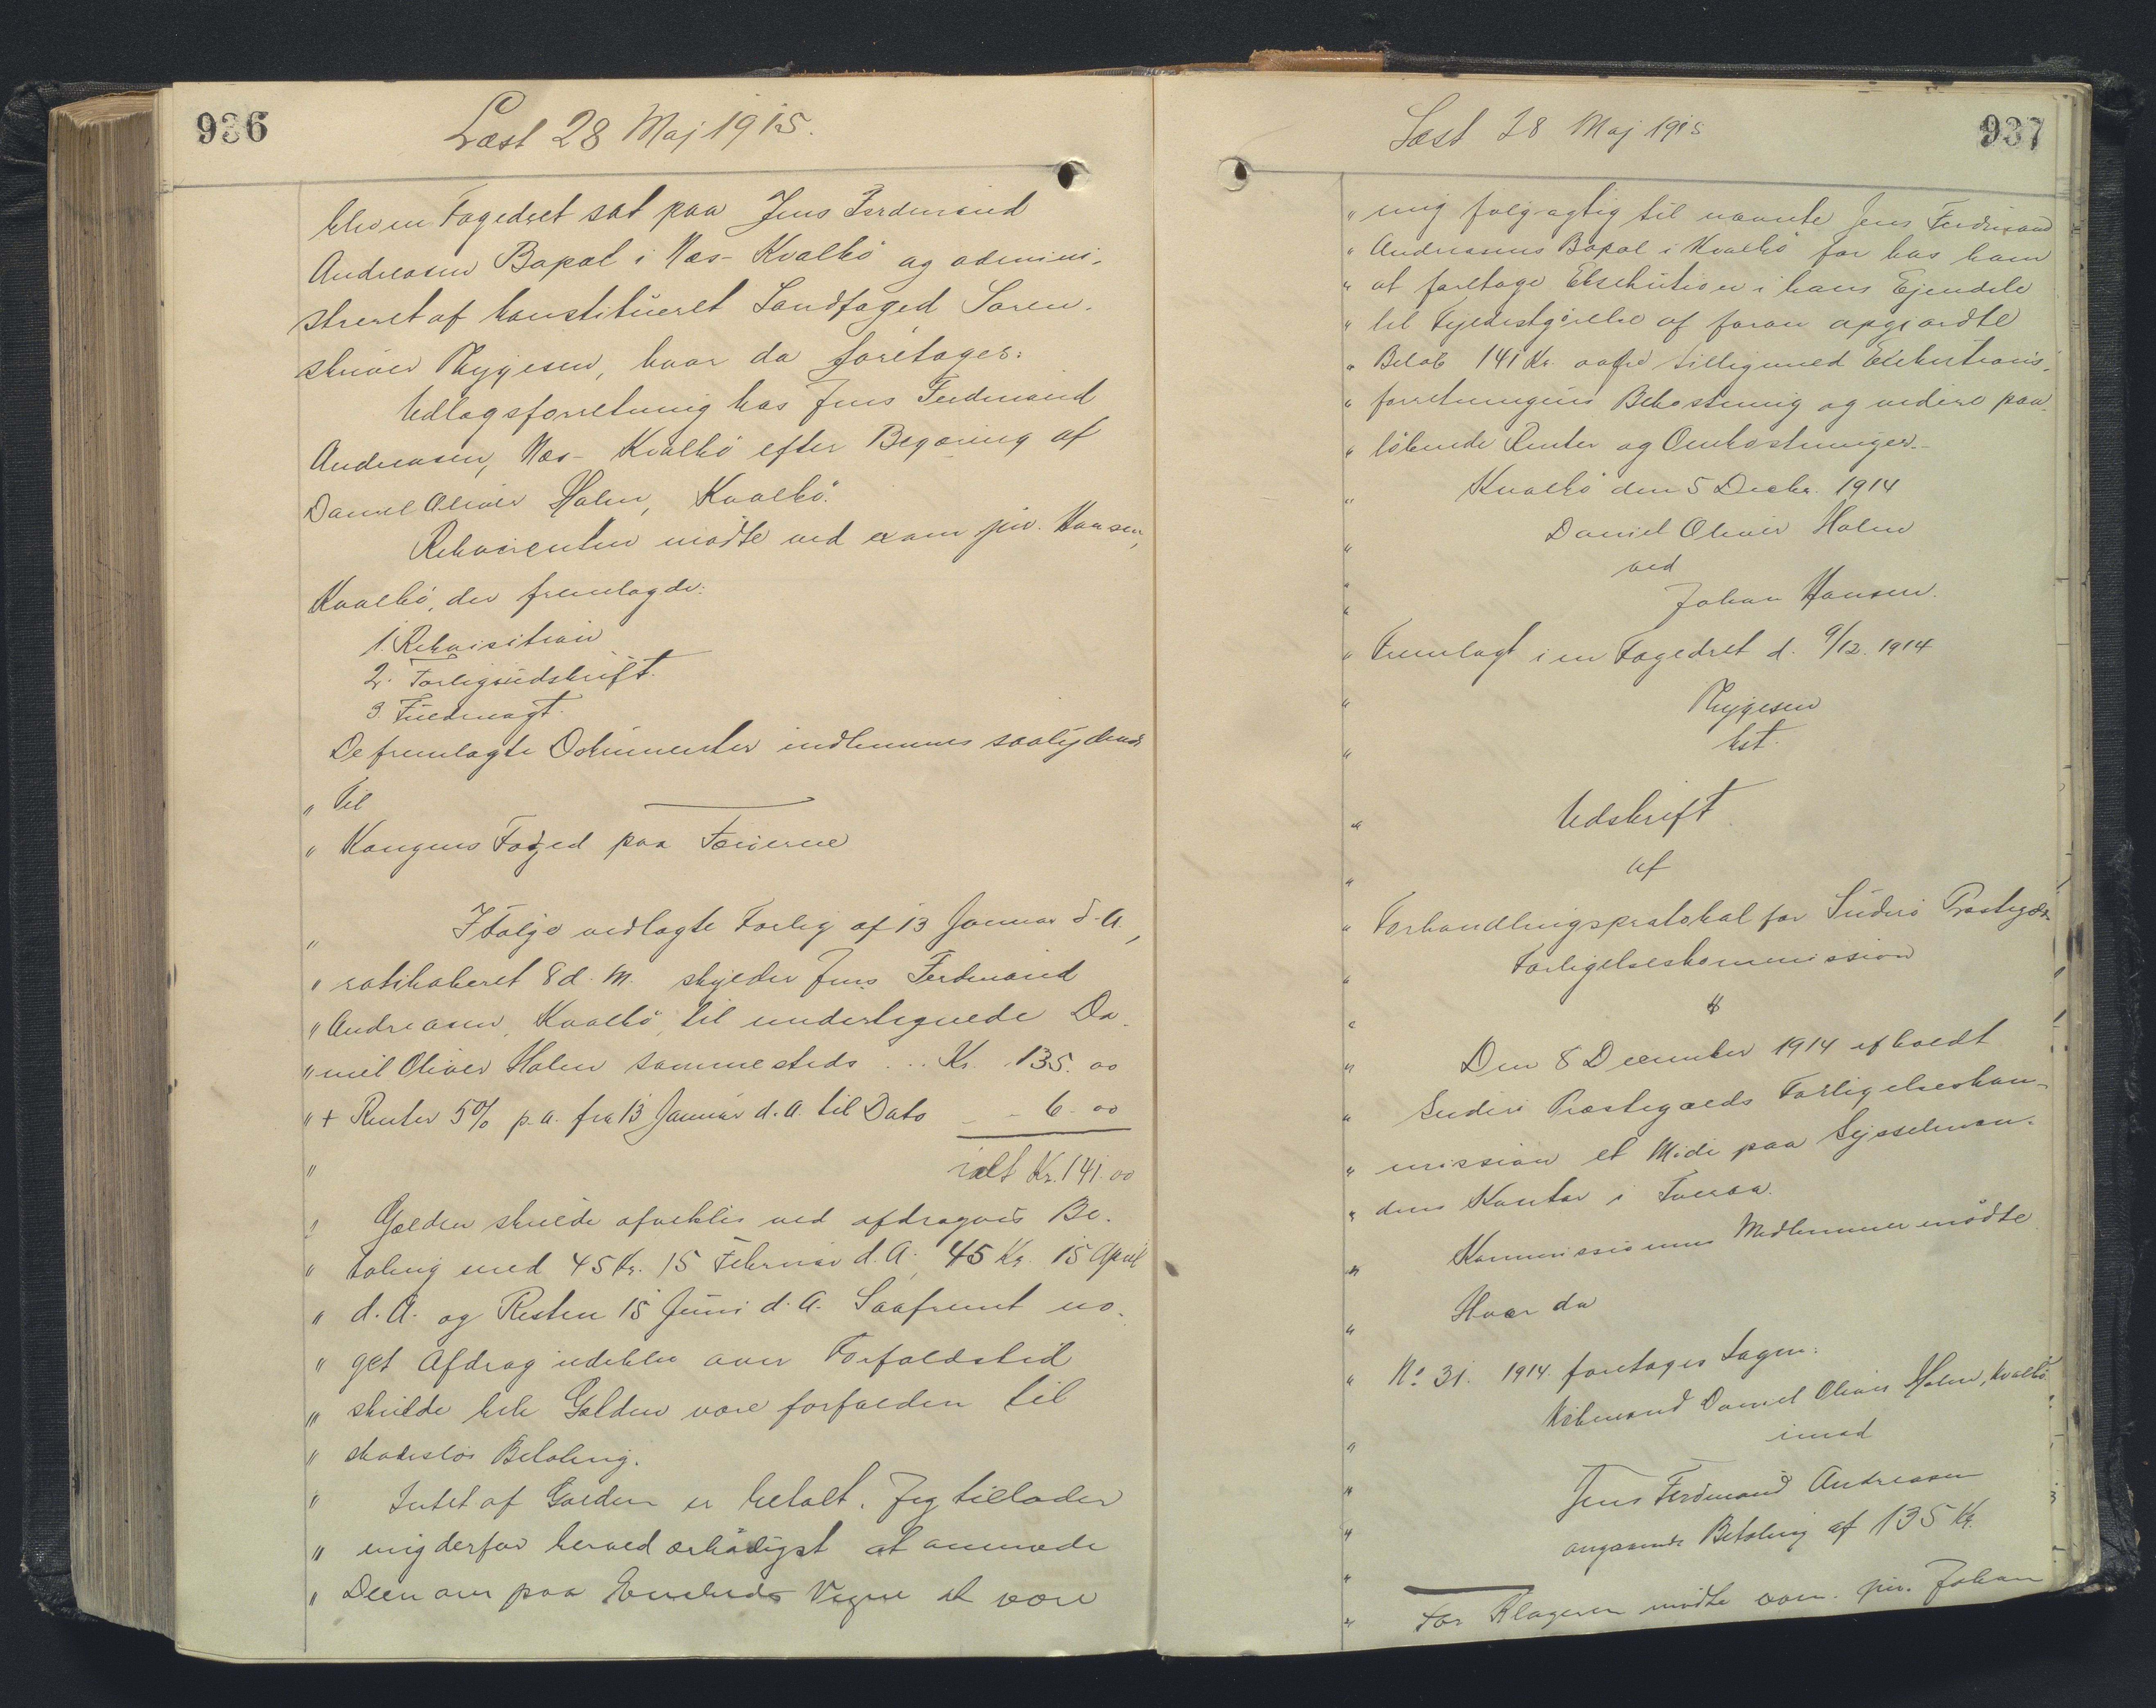 936
Læst 28 Maj 1915.
blev en Fogedret sat paa Jens Ferdinand
Andreasen Bopæl i Næs- Kvalbö og admini-
streret af konstitueret Landfoged Soren-
skriver Thygesen, hvor da foretoges:
Udlagsforretning hos Jens Ferdinand
Andreasen, Næs- Kvalbö efter Begæring af
Daniel Oliver Holm, Kvalbö.
Rekvirenten mødte ved exam. jur. Hansen,
Kvalbö, der fremlagde:
1. Rekvisition
2. Forligsudskrift.
3. Fuldmagt.
De fremlagte Dokumenter indlemmes saalydende
" Til
" Kongens Foged paa Færöerne
" Ifölge vedlagte Forlig af 13 Januar d. A.,
" ratihaberet 8 d. M. skylder Jens Ferdinand
" Andreasen, Kvalbö, til undertegnede Da-
" niel Oliver Holm sammesteds ... Kr. 135.00
" + Renter 5% p.a. fra 13 Januar d.A. til Dato - - 6.00
" ialt Kr. 141.00
" Gælden skulde afvikles ved afdragvis Be-
" taling med 45 Kr. 15 Februar d.A., 45 Kr. 15 April
" d. A. og Resten 15 Juni d.A. Saafremt no-
" get Afdrag udeblev over Forfaldstid
" skulde hele Gælden være forfalden til
" skadeslös Betaling.
" Intet af Gælden er betalt. Jeg tillader
" mig derfor herved ærbödigst at anmode
" Dem om paa Embeds Vegne at være
937
Læst 28 Maj 1915
" mig fölgagtig til nævnte Jens Ferdinand
" Andreasens Bopæl i Kvalbö for hos ham
" at foretage Eksekution i hans Ejendele
" til Fyldestgörelse af foran opgjordte
" Belöb 141 Kr. 00 Öre tilligemed Eksekutions-
" forretningens Bekostning og videre paa-
" löbende Renter og Omkostninger.-
" Kvalbö den 5 Decbr. 1914
" Daniel Oliver Holm
" ved
" Johan Hansen.
" Fremlagt i en Fogedret d. 9/12. 1914
" Thygesen
" kst.
" Udskrift
" af
" Forhandlingsprotokol for Suderö Præstegælds
" Forligelseskommission
" Den 8 December 1914 afholdt
" Suderö Præstegælds Forligelseskom-
" mission et Möde paa Sysselman-
" dens Kontor i Tveraa.
" Kommissionens Medlemmer mödte.
" Hvor da
" No 31. 1914. foretoges Sagen:
" Købmand Daniel Oliver Holm, Kvalbö
" imod
" Jens Ferdinand Andreasen
" angaaende Betaling af 135 Kr.
" For Klageren mödte exam. jur. Johan